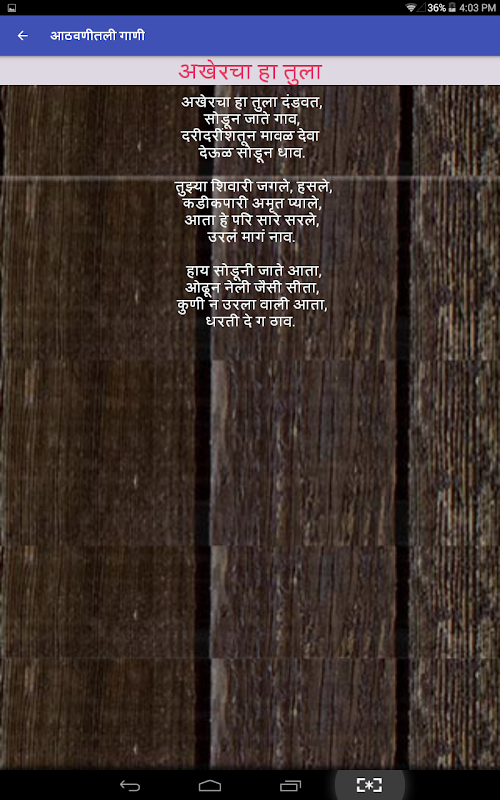 36% 4:03 PM
आठवणीतली गाणी
अखेरचा हा तुला
अखेरचा हा तुला दंडवत,
सोडून जाते गाव,
दरीदरीशतून मावळ देवा
देऊळ सोडून धाव.
तुझ्या शिवारी जगले, हसले,
कडीकपारी अमृत प्याले,
आता हे परि सारे सरले,
उरलं मागं नाव.
हाय सोडूनी जाते आता,
ओढून नेली जैसी सीता,
कुणी न उरला वाली आता,
धरती दे ग ठाव.